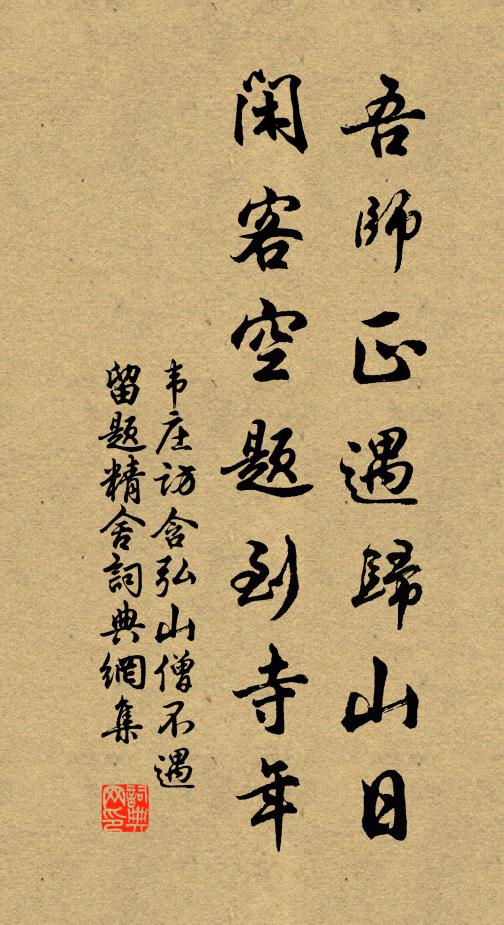 吾師正遇歸山日
閑客空題到寺年
韦庄访含弘山僧不遇
留题精舍詞典網集
詞典网印